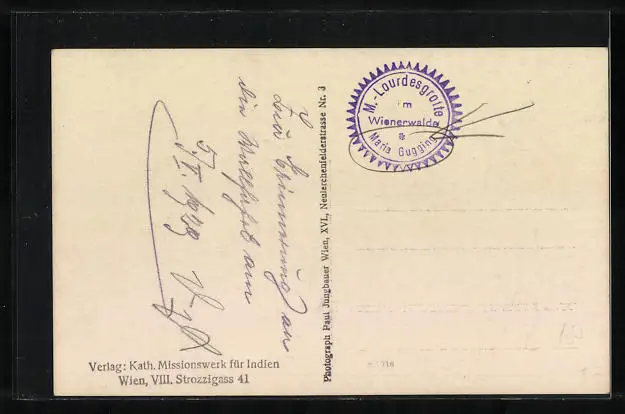 Zur Erinnerung an
die Wallfahrt am
5./V. 1929
Verlag: Kath. Missionswerk für Indien
Wien, VIII. Strozzigass 41
Photograph Paul Jungbauer Wien, XVI., Neulerchenfelderstrasse Nr. 3
M.-Lourdesgrotte
im
Wienerwalde
*
Maria Gugging